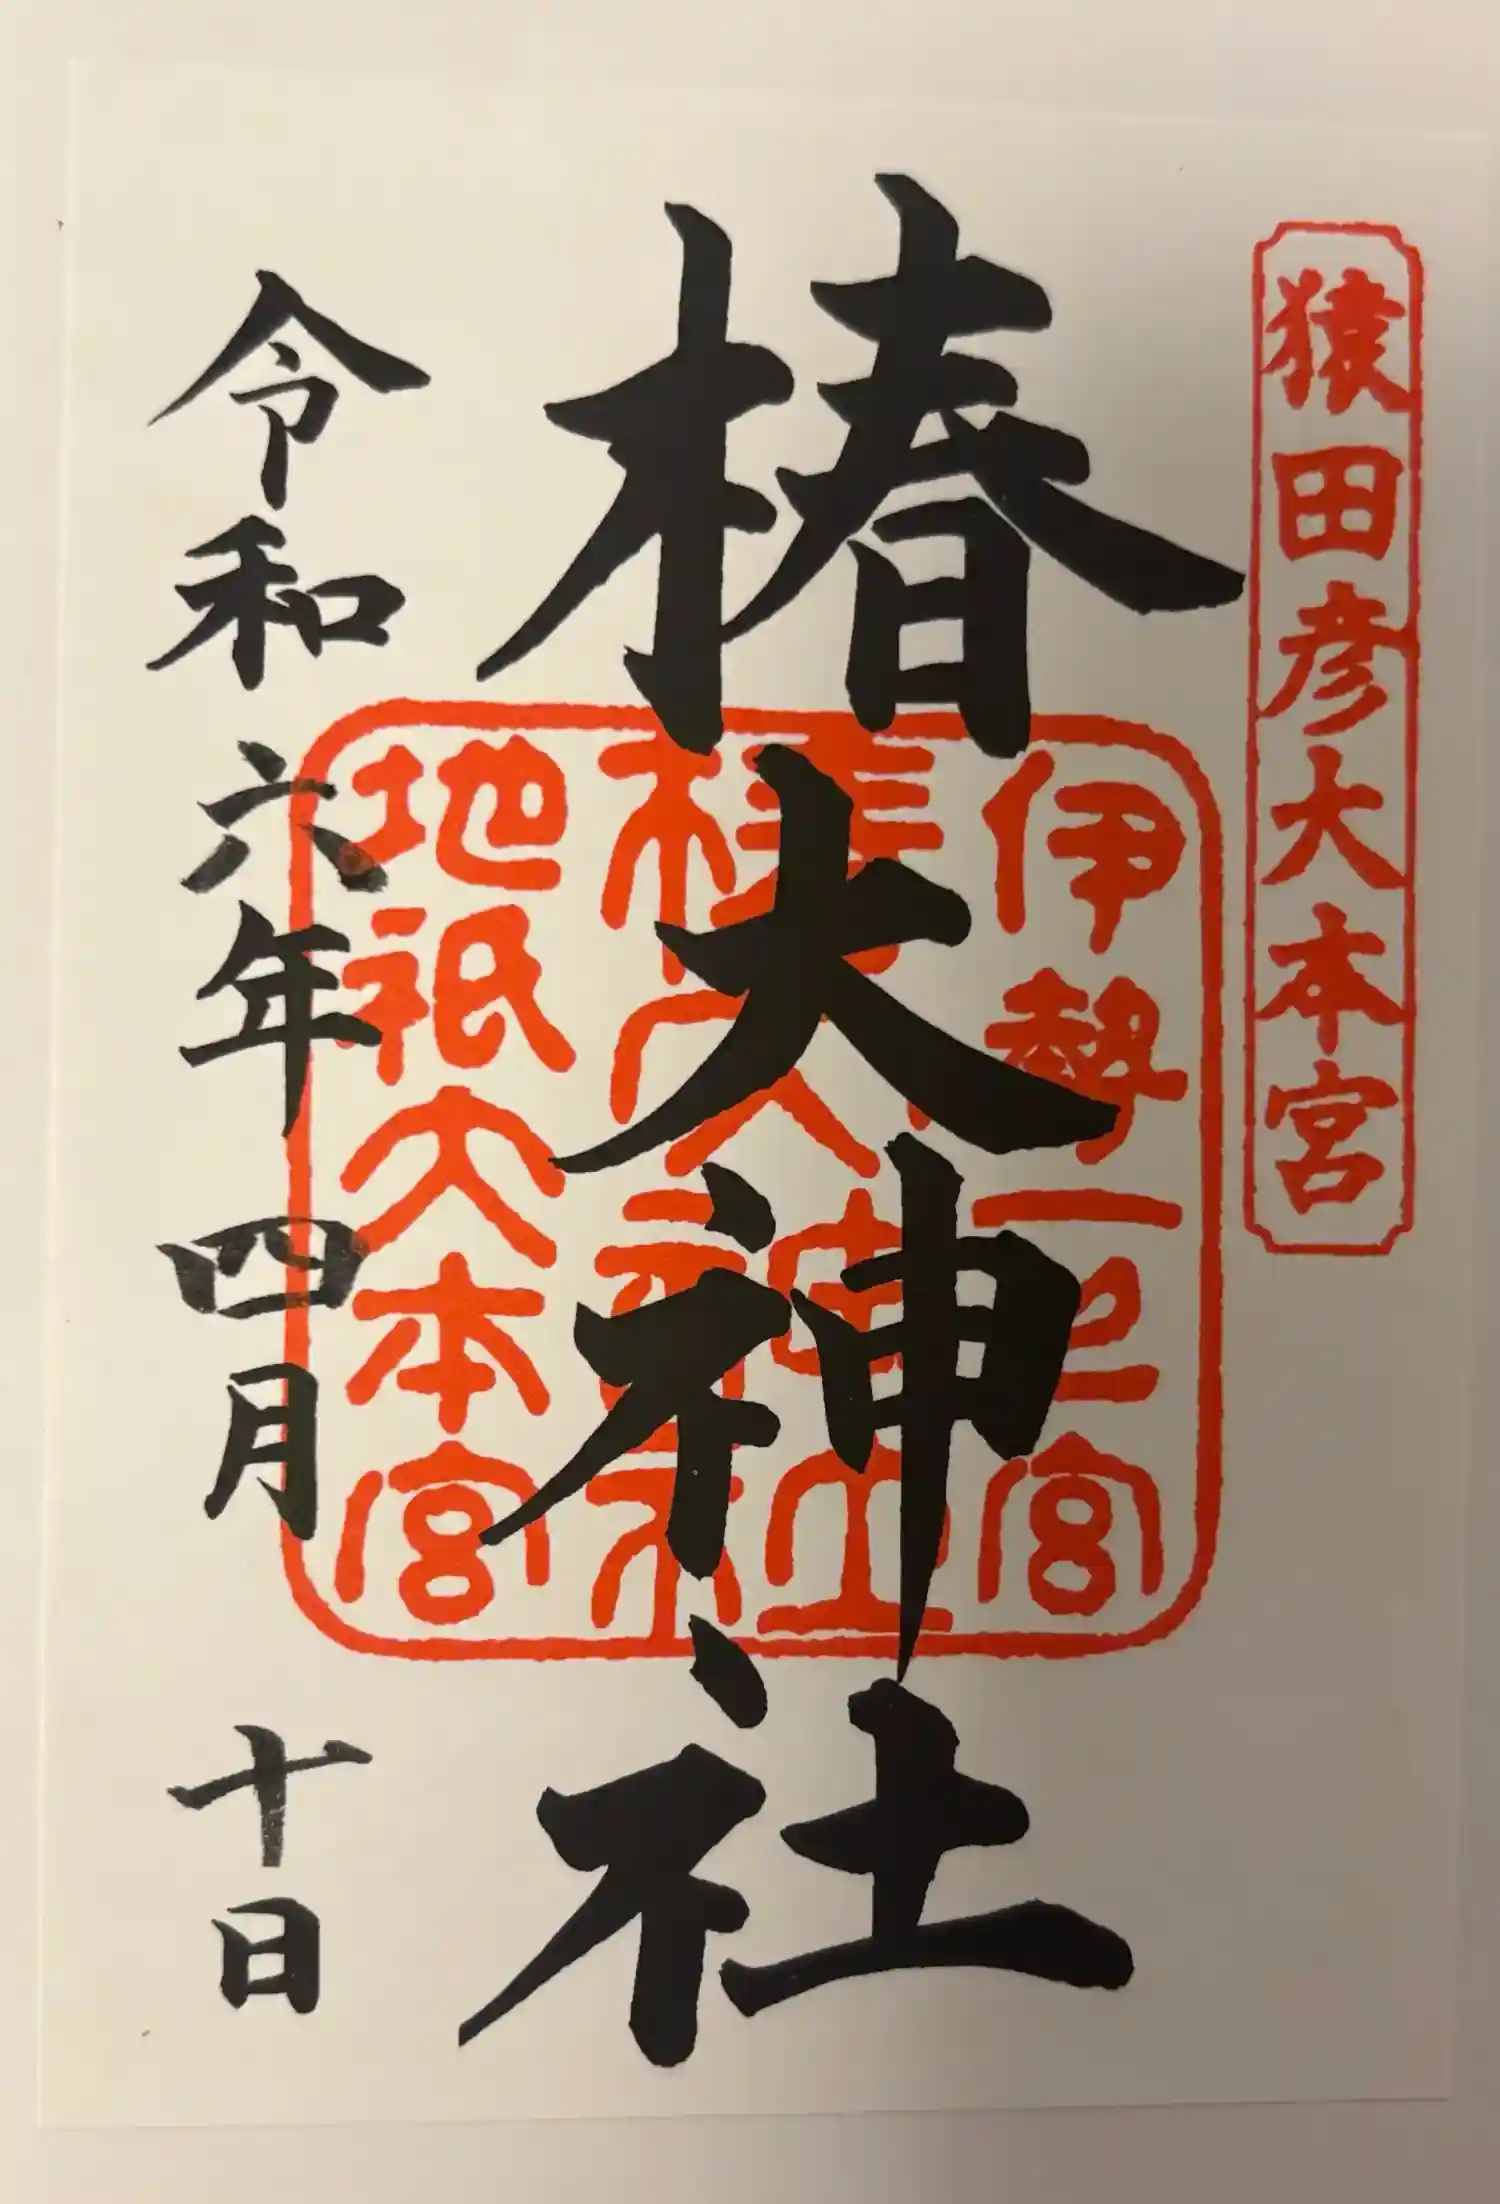 猿田彦大本宮
椿大神社
伊勢一之宮
椿大神社
地祇大本宮
令和六年四月十日